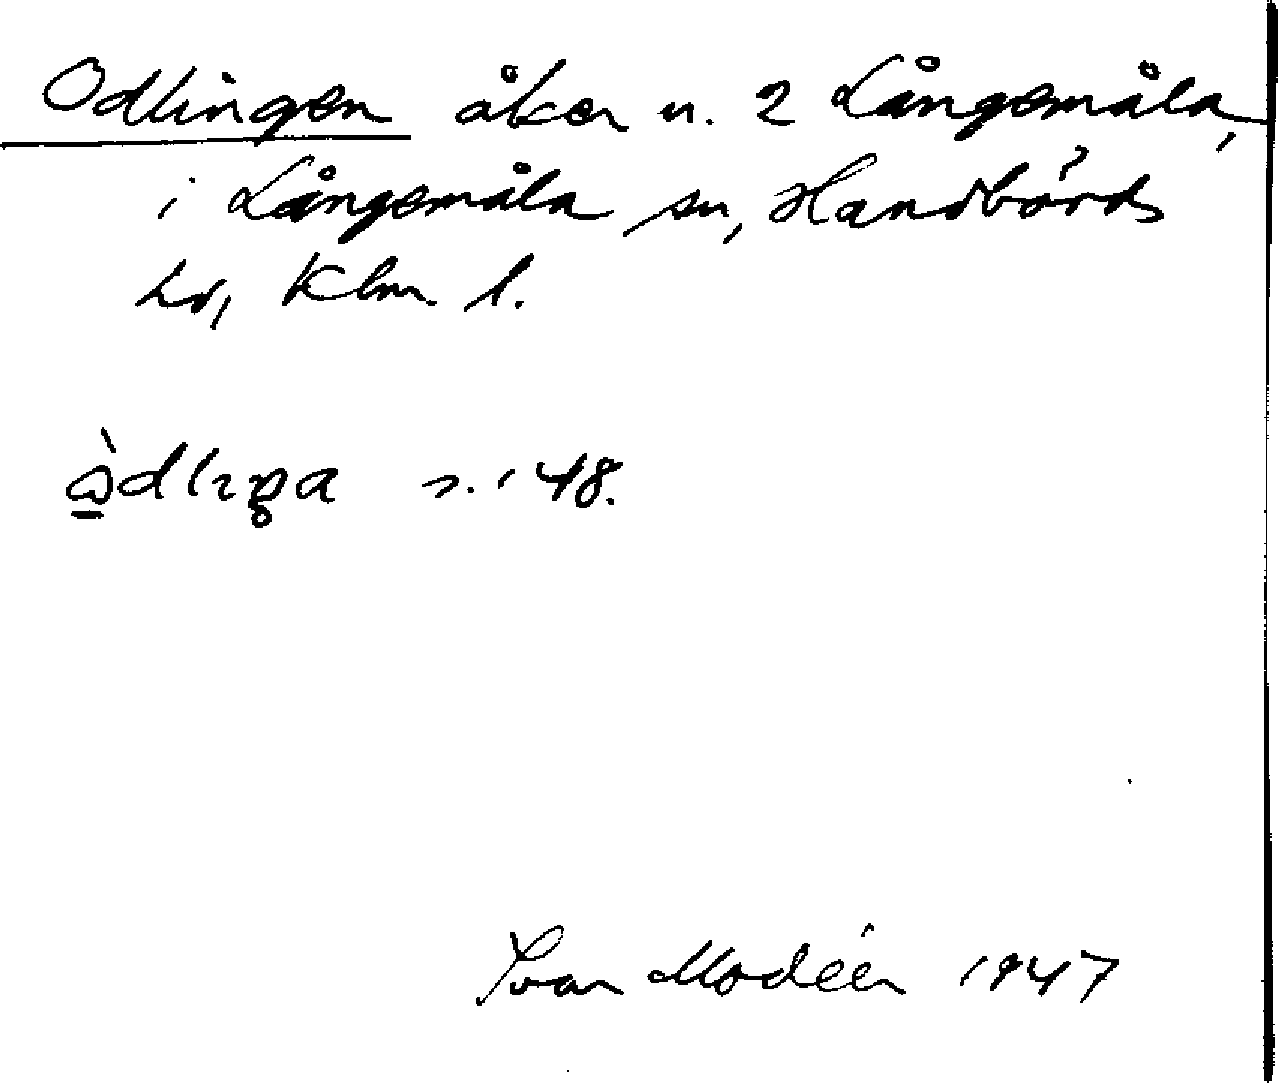 Odlingen åker n. 2 Långemåla,
i Långemåla sn, Handbörds
hd, Klm. l.
s. 148.
Ivar Modéer 1947